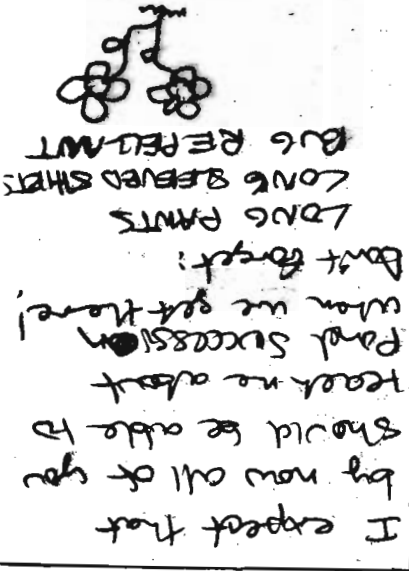 I expect that
by now all of you
should be able to
teach me about
Pond Succession
when we get there!
Don't forget:
LONG PANTS
LONG SLEEVED SHIRTS
BUG REPELLANT